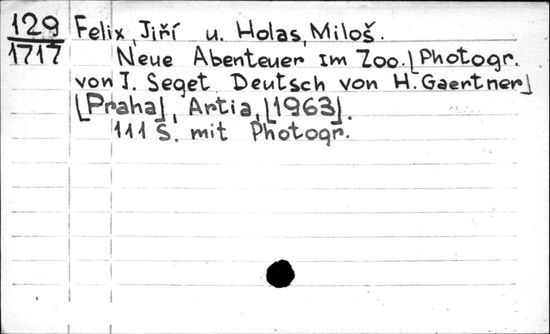 129 Felix, Jiří u. Holas, Miloš.
1717 Neue Abenteuer im Zoo. [Photogr.
von J. Seget Deutsch von H. Gaertner]
[Praha], Artia, [1963].
111 S. mit Photogr.